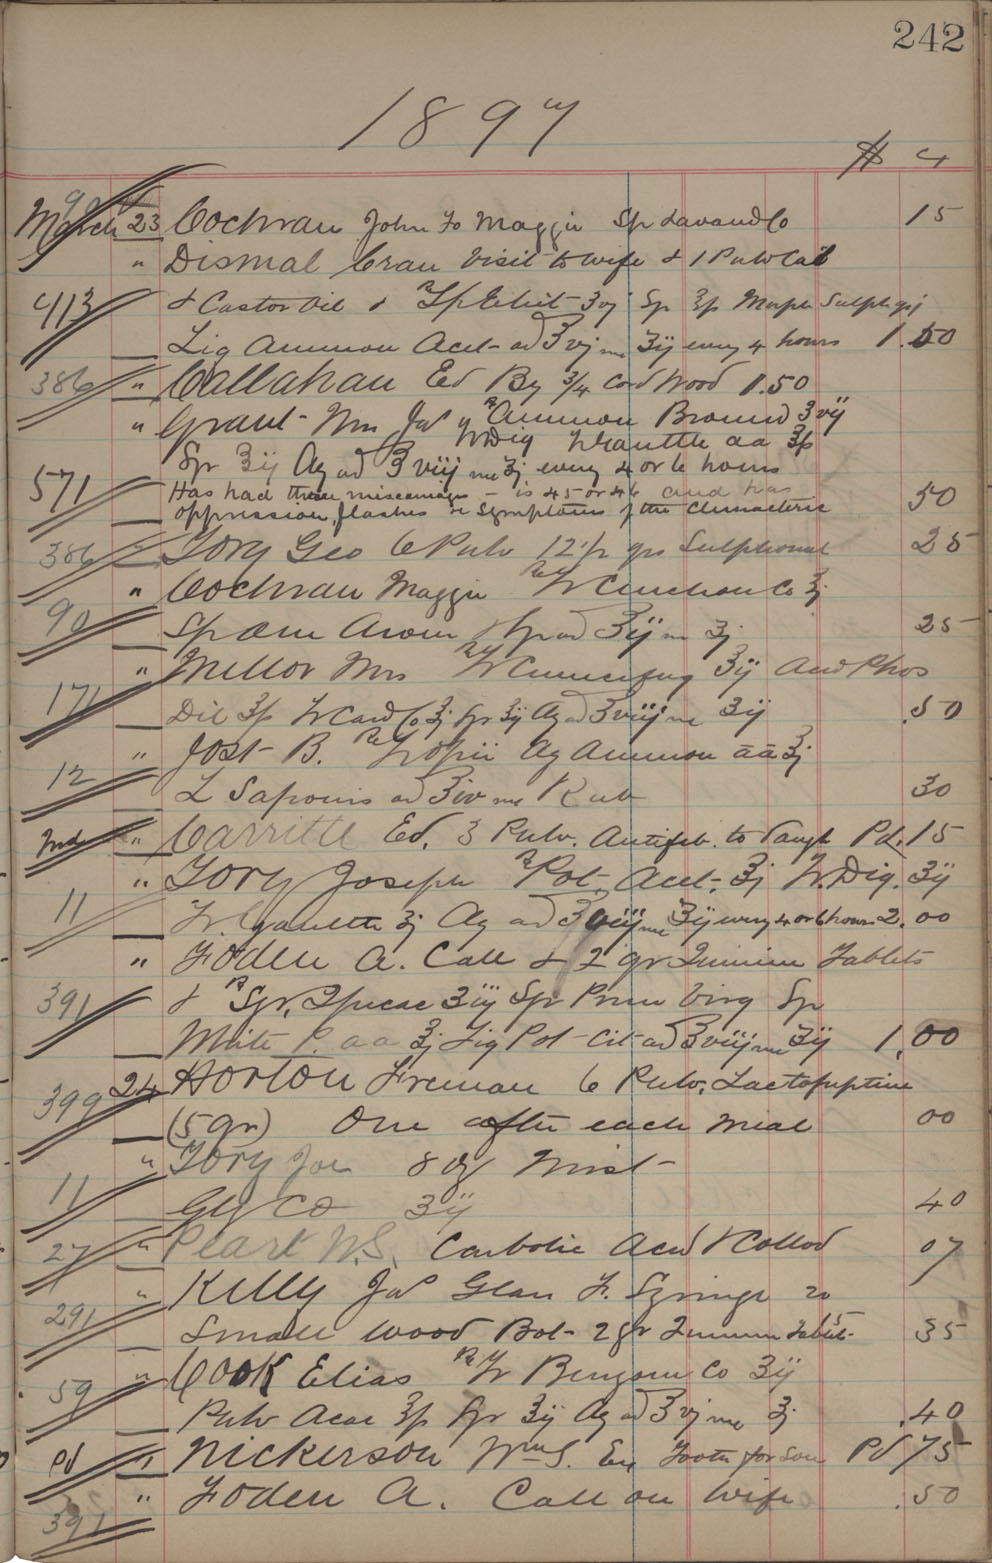 242
1897
$ ¢
90
March 23 Cochran John To Maggie Sp Lavand Co 15
" Dismal Cran Visit to wife & 1 Pulv Cal
413 & Castor Oil & Sp Ethit ʒvj Sp ʒp Morph Sulph grj
Liq Ammon Acet ad ℥vj me ʒij every 4 hours 1.50
386 " Callahan Ed By 3/4 Cord Wood 1.50
" Grant Mrs Jas ℞ Ammon Bromid ʒvij
Tr Dig Tr Hyantth aa ʒp
Syr ℥ij Aq ad ℥viij me ʒj every 4 or 6 hours
571 Has had three miscarriages - is 45 or 46 and has 50
oppression, flashes & symptoms of the climacteric
386 " Tory Geo 6 Pulv 12 1/2 grs Sulphonal 25
" Cochran Maggie ℞ Tr Cinchon Co ℥j
90 Sp Am Arom Syr ad ℥ij me ʒj 25
" Mellor Mrs ℞ Tr Cimicifug ʒij Acid Phos
171 Dil ℥p Tr Card Co ℥j Syr ℥ij Aq ad ℥viij me ʒij .50
" Jost B. ℞ Tr Opii Aq Ammon aa ℥j
12 L Saponis ad ℥iv me Rub 30
Ind " Carritte Ed, 3 Pulv. Antifeb. to Daugh Pd. 15
" Tory Joseph ℞ Pot. Acet. ℥j Tr. Dig. ʒij
11 Tr. ℥j Aq ad ℥viij me ʒij every 4 or 6 hours 2.00
" Foden A. Call & 2 gr Quinine Tablets
391 & ℞ Syr. Ipecac ʒiij Syr Prun Virg Syr
White P. aa ℥j Liq Pot Cit ad ℥viij me ʒij 1.00
399 24 Horton Freman 6 Pulv. Lactopeptine
(5 gr) One after each meal 00
" Tory Joe 8 oz Mist
11 Gly Co ℥ij 40
27 " Peart W.S. Carbolic Acid & Collod 07
" Kelly Jas Glass F. Syringe 20
291 Small Wood Bot - 2 gr Quinine Tablet 15 35
" Cook Elias ℞ Tr Benzoin Co ʒij
59 Pulv Acac ʒp Syr ℥ij Aq ad ℥vj me ʒj .40
Pd " Nickerson Wm S. Ex Tooth for Son Pd 75
" Foden A. Call on Wife .50
391